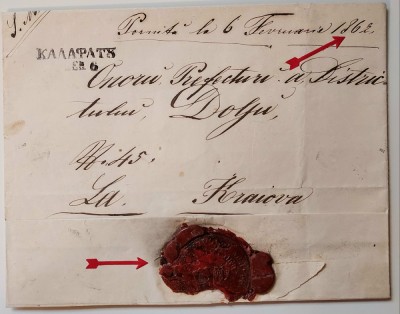 Pornită la 6 Fevruarie 1862.
КАЛАФАТЪ
6
Onoru. Prefecturi a Distric-
tului, Dolju,
N: 45.
La Kraiova